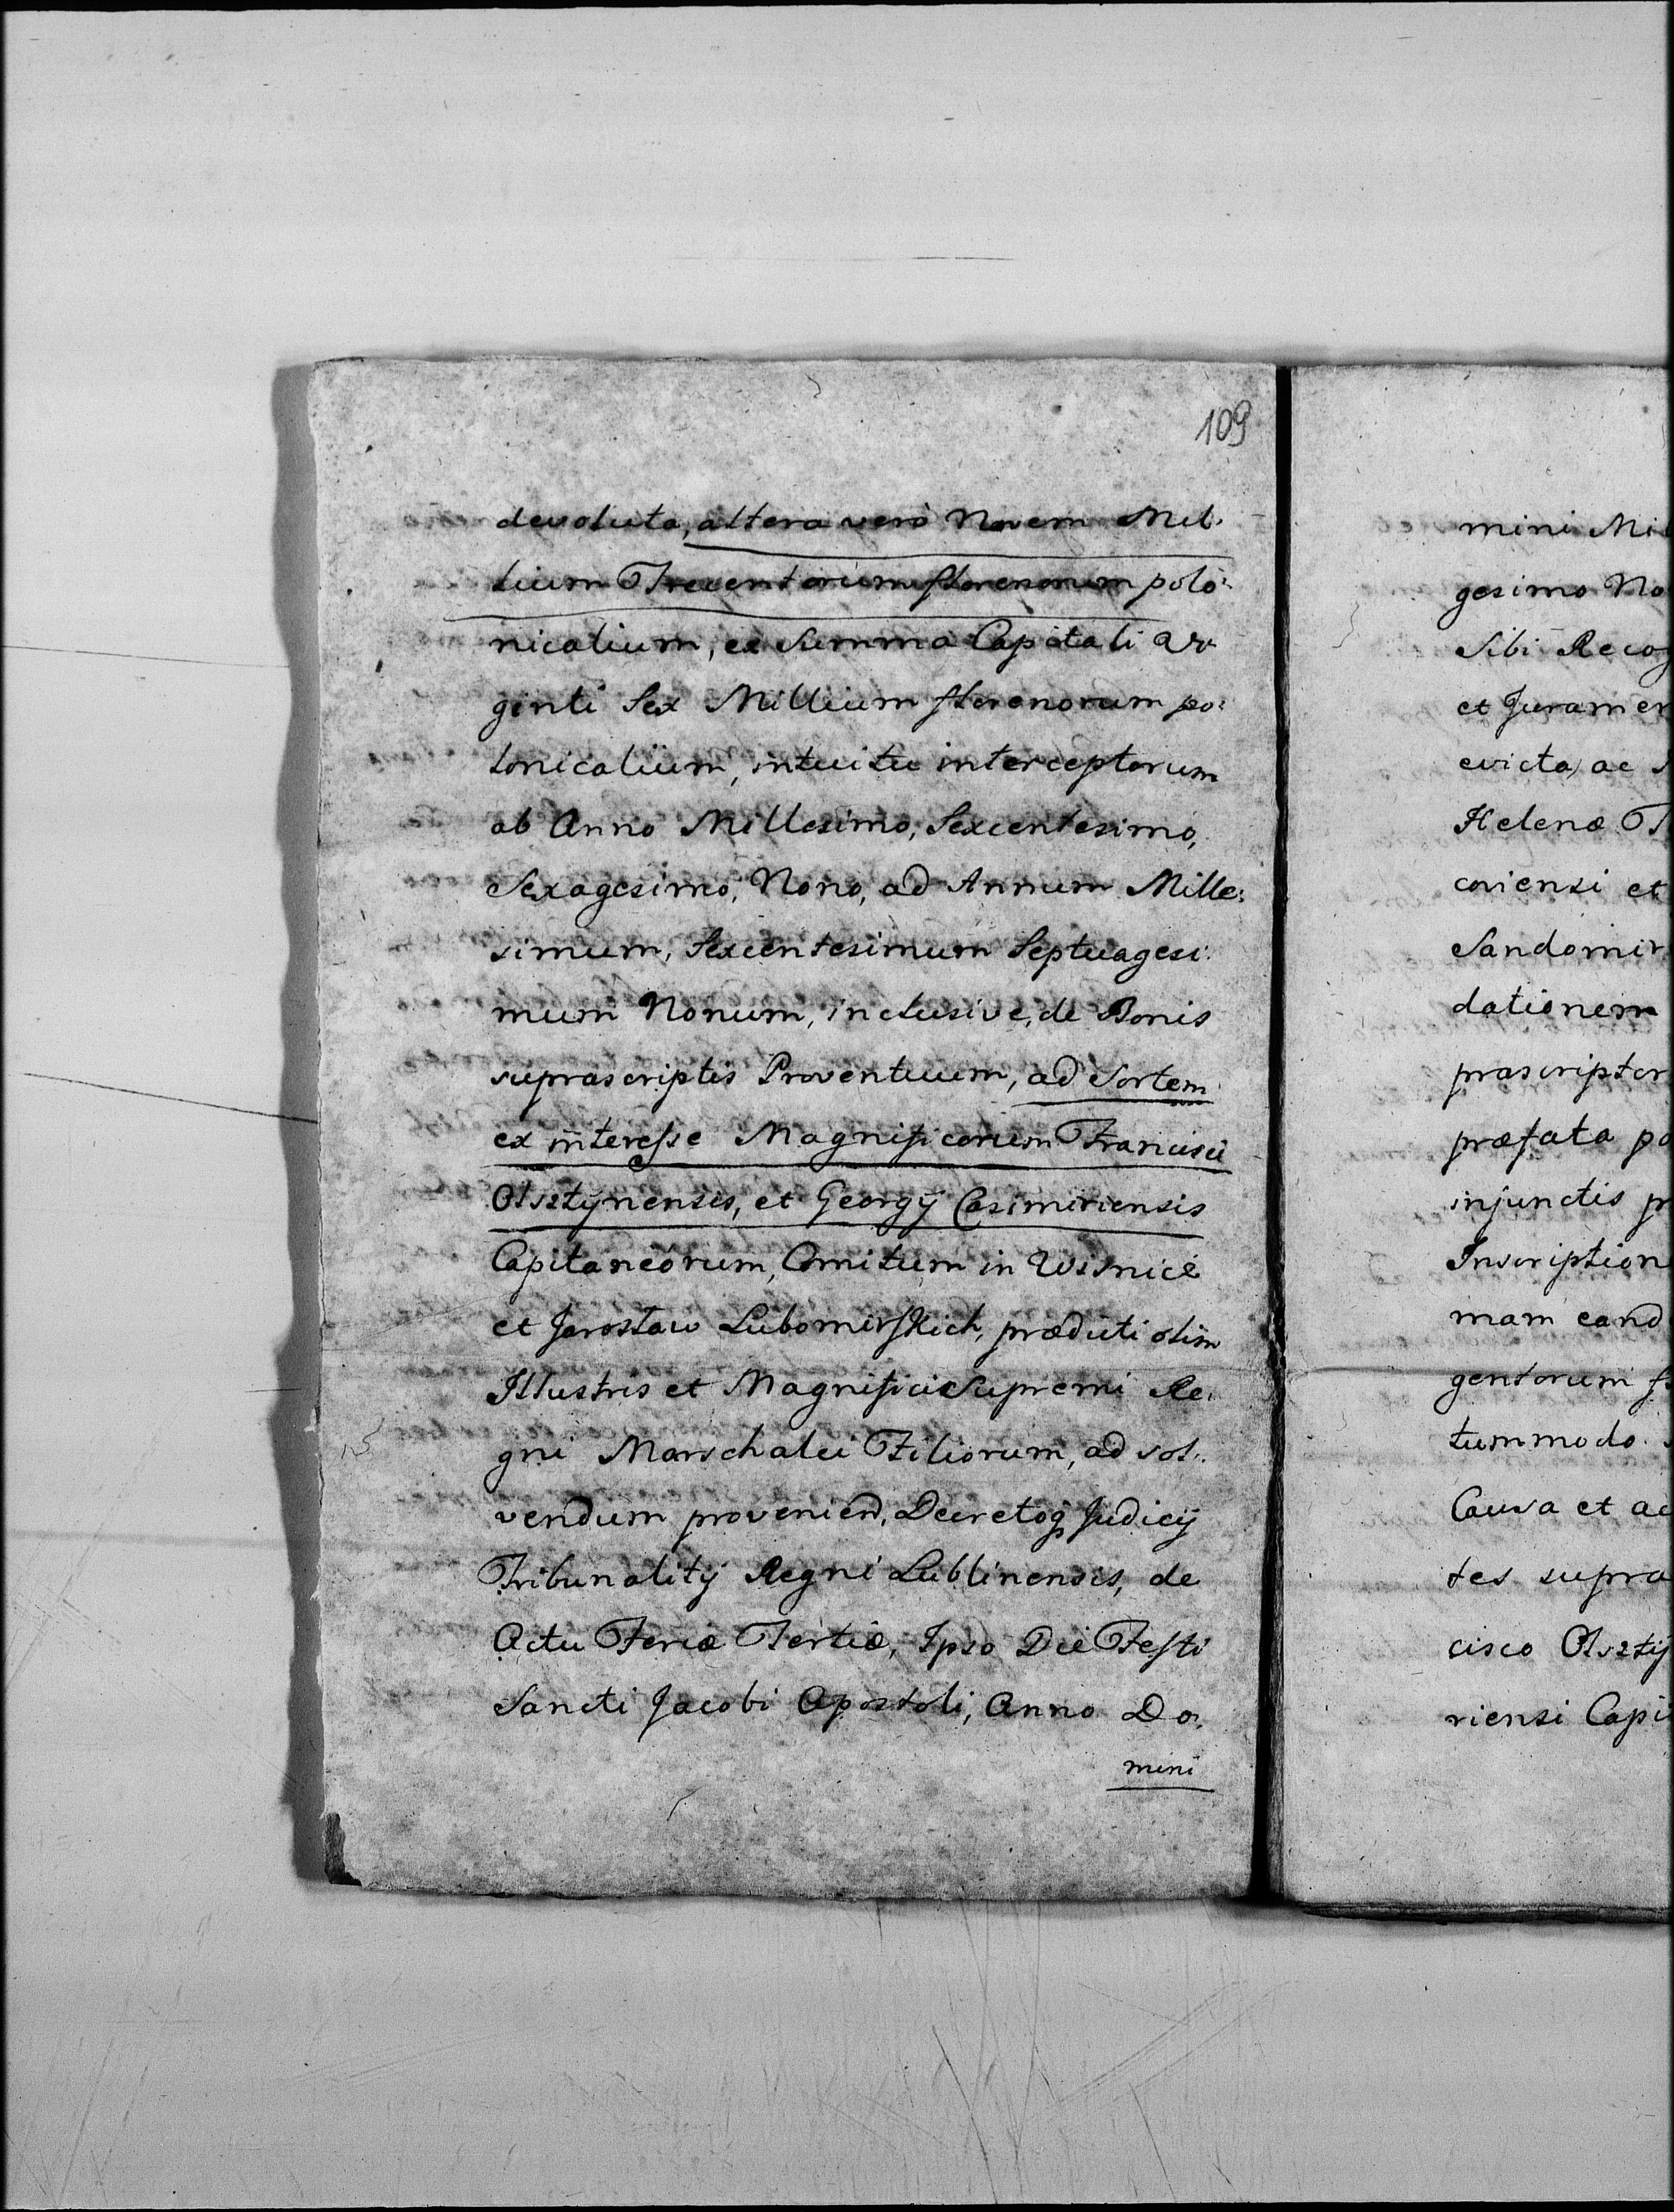 109
devoluta, altera verò Novem Mil:
lium Trecentorum florenorum polo:
nicalium, ex Summa Capitali Vi
ginti Sex Millium florenorum po:
lonicalium, intuitu interceptorum
ab Anno Millesimo, Sexcentesimo,
Sexagesimo, Nono, ad Annum Mille:
simum, Sexcentesimum Septuagesi:
mum Nonum, inclusive, de Bonis
suprascriptis Proventuum, ad Sortem
ex interesse Magnificorum Francisci
Olsztÿnensis, et Georgÿ Casimiriensis
Capitaneorum, Comitum in Wisnicé
et Jarosław Lubomirskich, præduti olim
Illustris et Magnifici Supremi Re:
gni Marschalci Filiorum, ad sol:
vendum proveniend, Decretoq Judicÿ
Tribunalitÿ Regni Lublinensis, de
Actu Feriæ Tertiæ, Ipso Die Festi
Sancti Jacobi Apostoli, Anno Do:
mini
mini Mil
gesimo No
Sibi Recog
et Juramen
evicta, ac
Helenæ T
coviensi et
Sandomir
dationem
præscriptor
præfata po
injunctis pr
Inscription
mam eand
gentorum f
tummodo
Causa et ac
tes supra
cisco Olsztÿ
riensi Capi